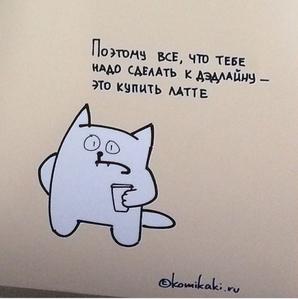 Поэтому все, что тебе
надо сделать к дэдлайну —
это купить латте
©komikaki.ru